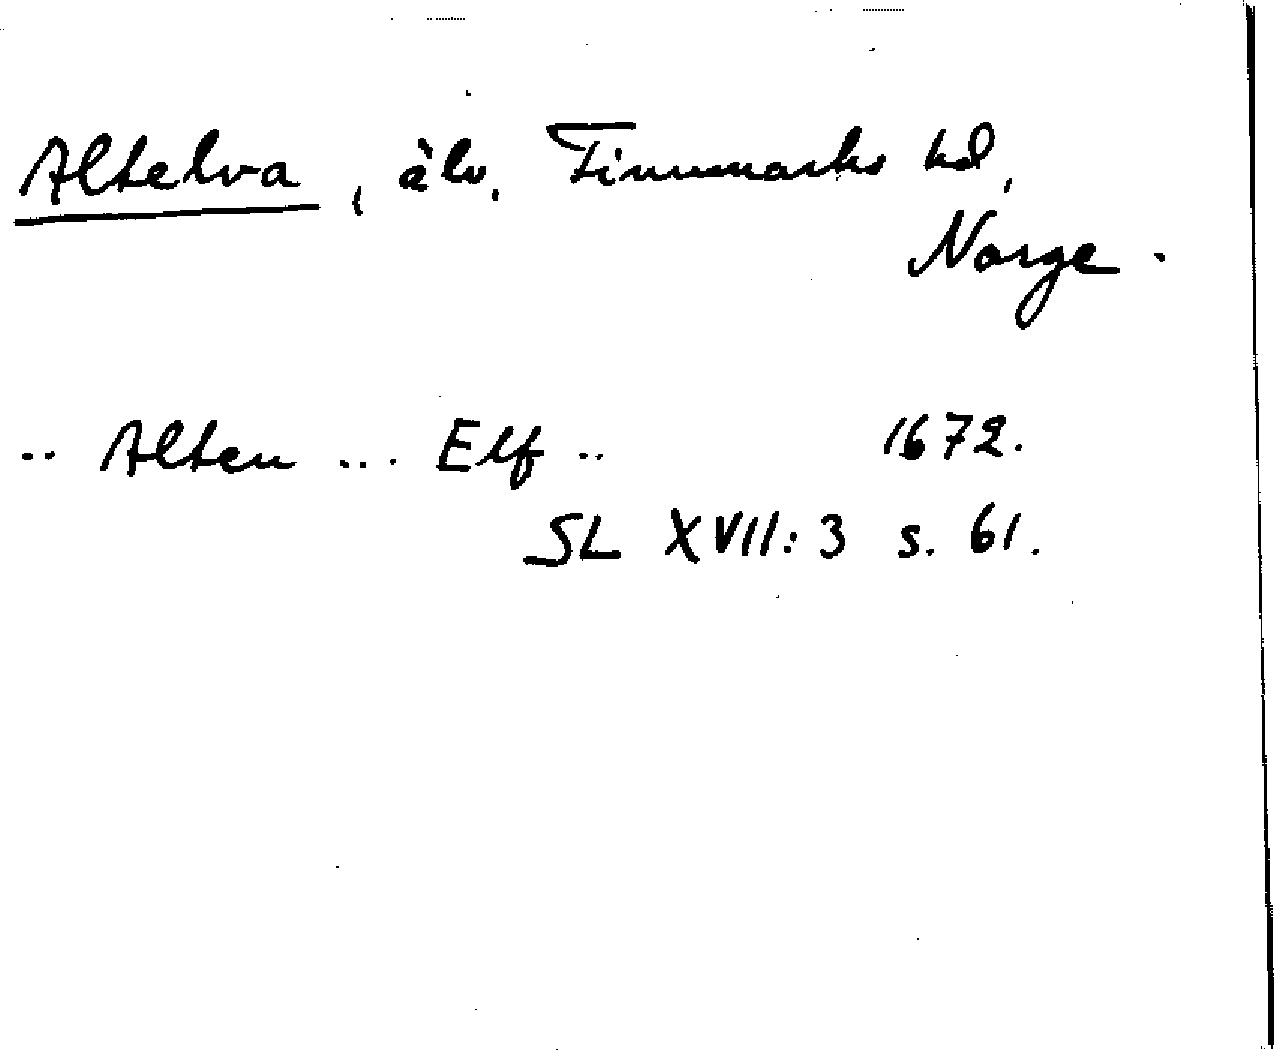 Altelva, älv, Finnmarks
Norge.
.. Alten ... Elf .. 1672.
SL XVII:3 s. 61.